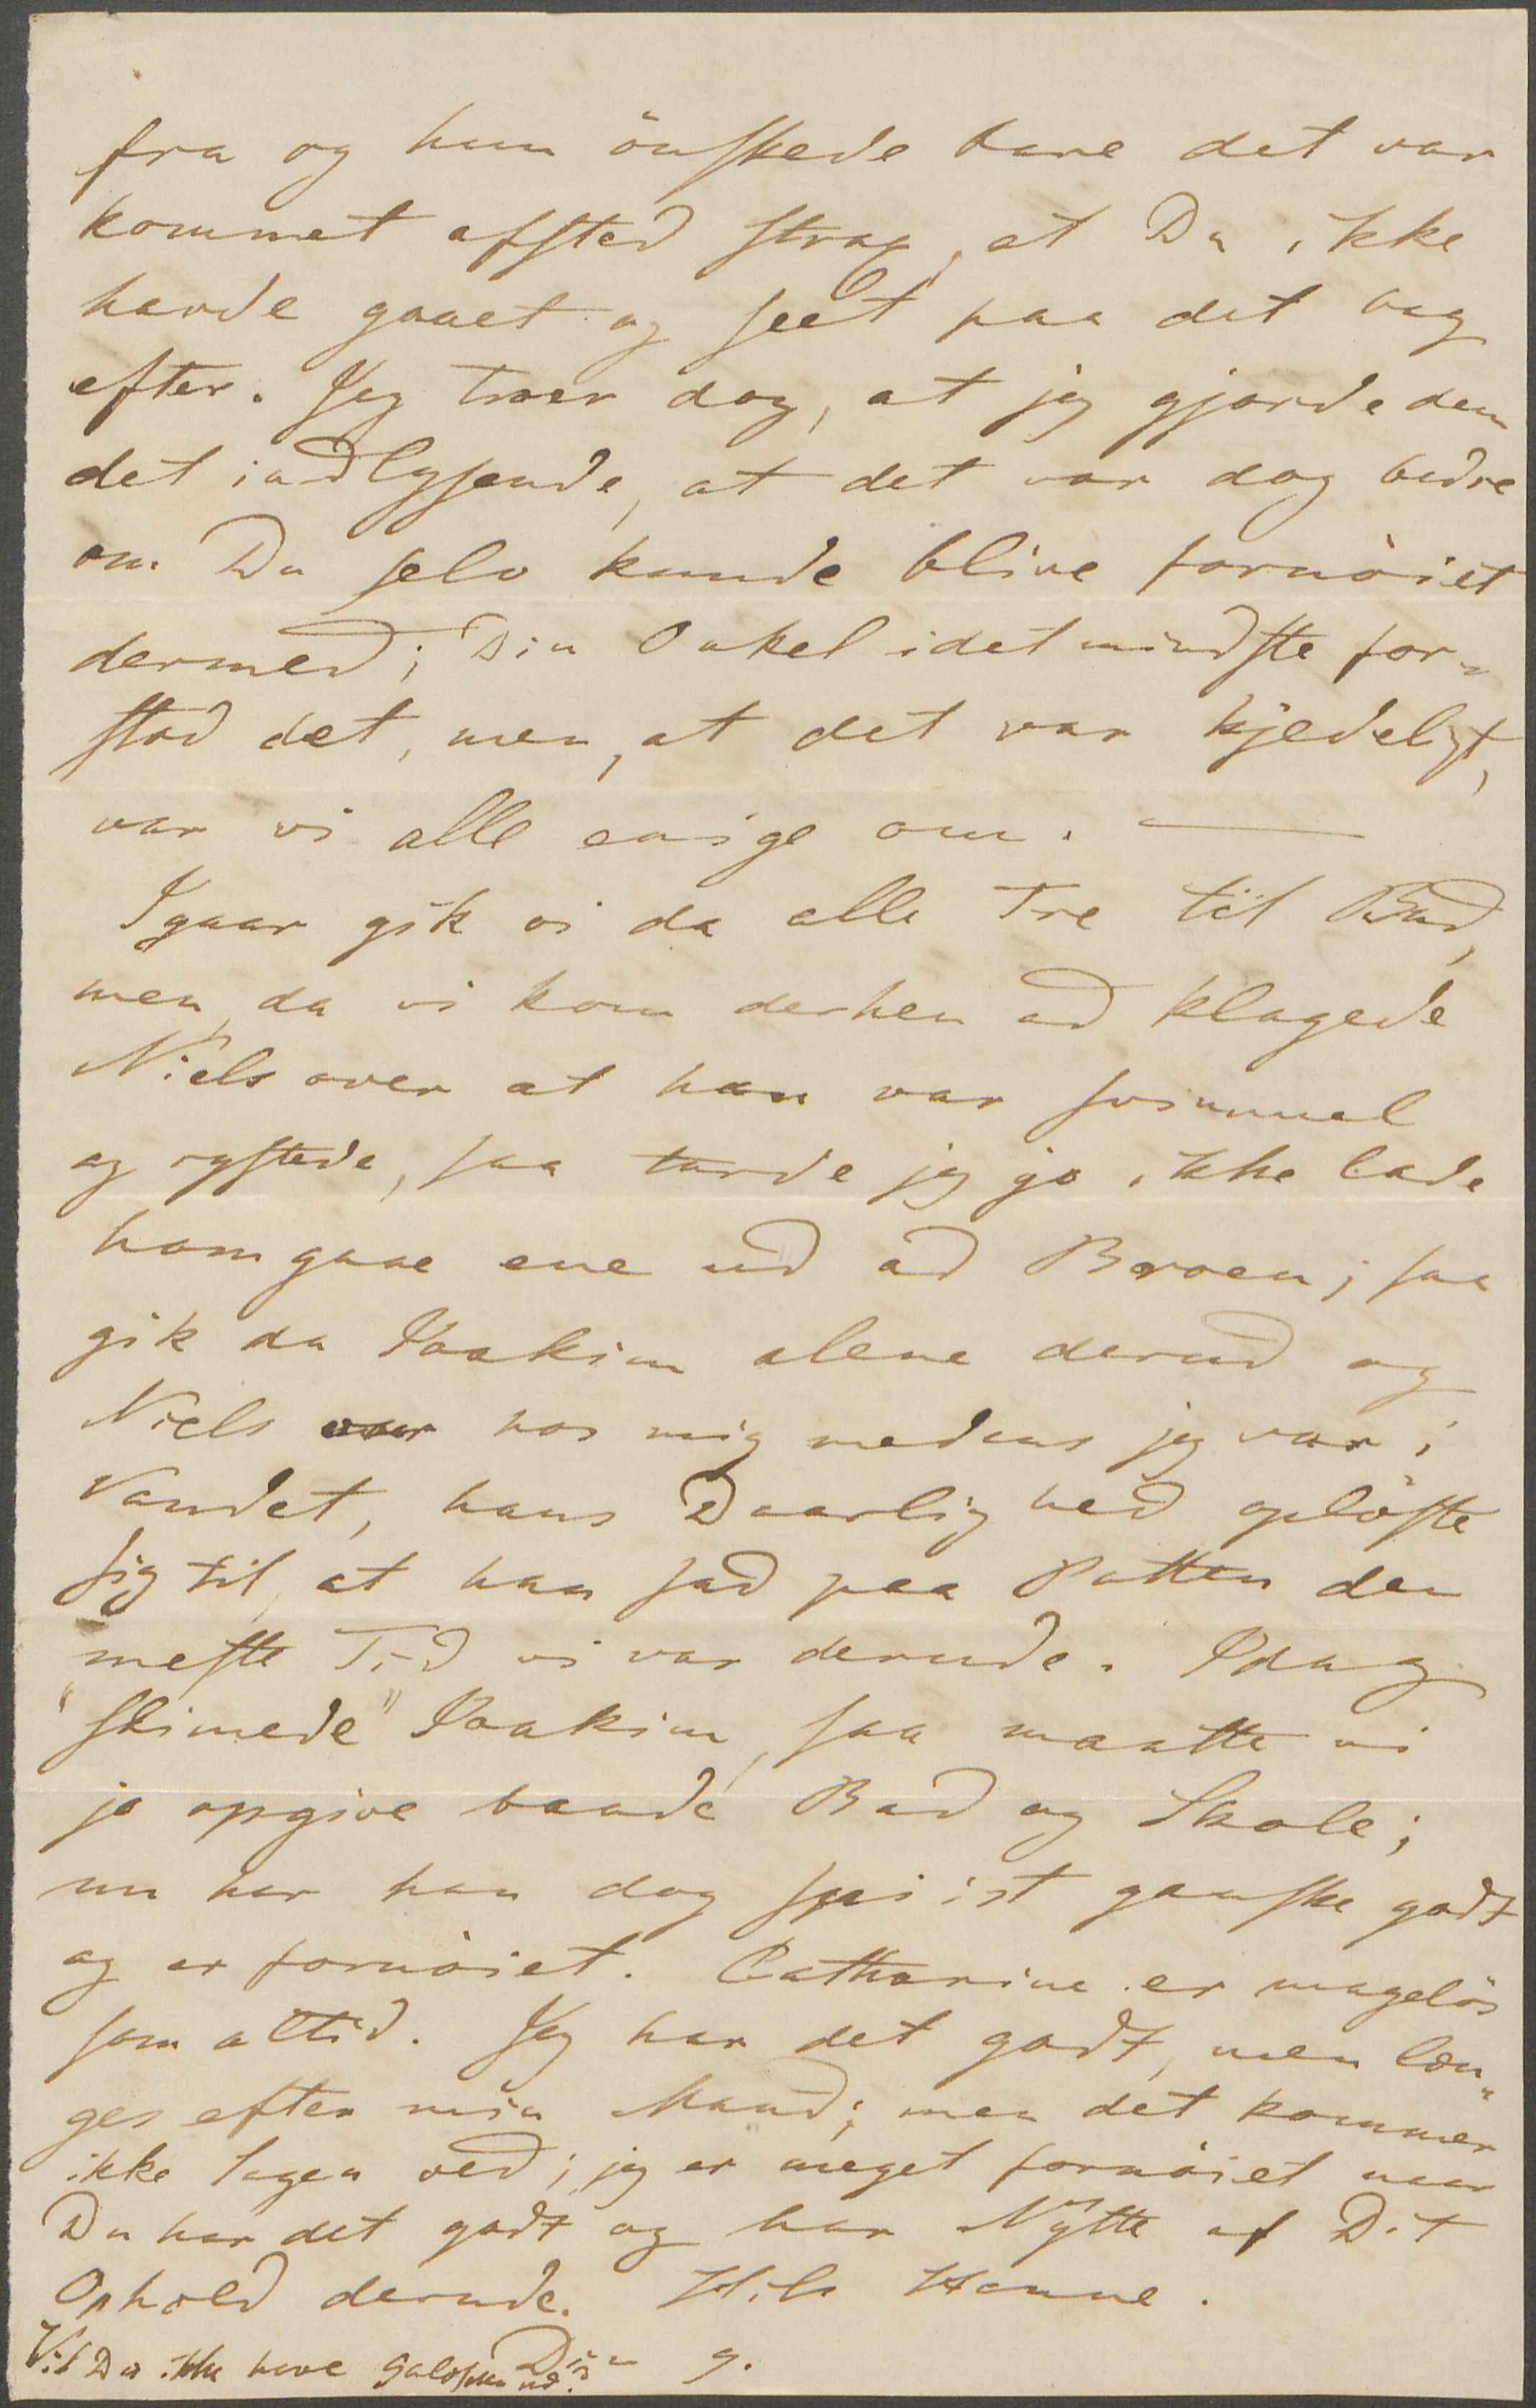 fra og hun önskede bare det var
kommet afsted strax, at Du ikke
havde gaaet og seet paa det bag
efter. Jeg troer dog, at jeg gjorde dem
det indlysende, at det var dog bedre
om Du selv kunde blive fornöiet
dermed; Din Onkel idetmindste for-
stod det, men, at det var kjedeligt,
var vi alle enige om. —
Igaar gik vi da alle Tre til Bad,
men da vi kom derhen ad klagede
Niels over at han var svimmel
og rystede, saa turde jeg jo ikke lade
ham gaae ene ud ad Broen; saa
gik da Joakim alene derud og
Niels var hos mig medens jeg var i
Vandet, hans Daarlighed oplöste
sig til, at han sad paa Potten den
meste Tid vi var derude. Idag
"skimede" Joakim, saa maatte vi
jo opgive baade Bad og Skole;
nu har han dog spiist ganske godt
og er fornöiet. Cathrine er magelös
som altid. Jeg har det godt, men læn-
ges efter min Mand; men det kommer
ikke Sagen ved; jeg er meget fornöiet naar
Du har det godt og har Nytte af Dit
Ophold derude. Hils Hanne.
Din g.
Vil Du ikke have Galoscher ud?